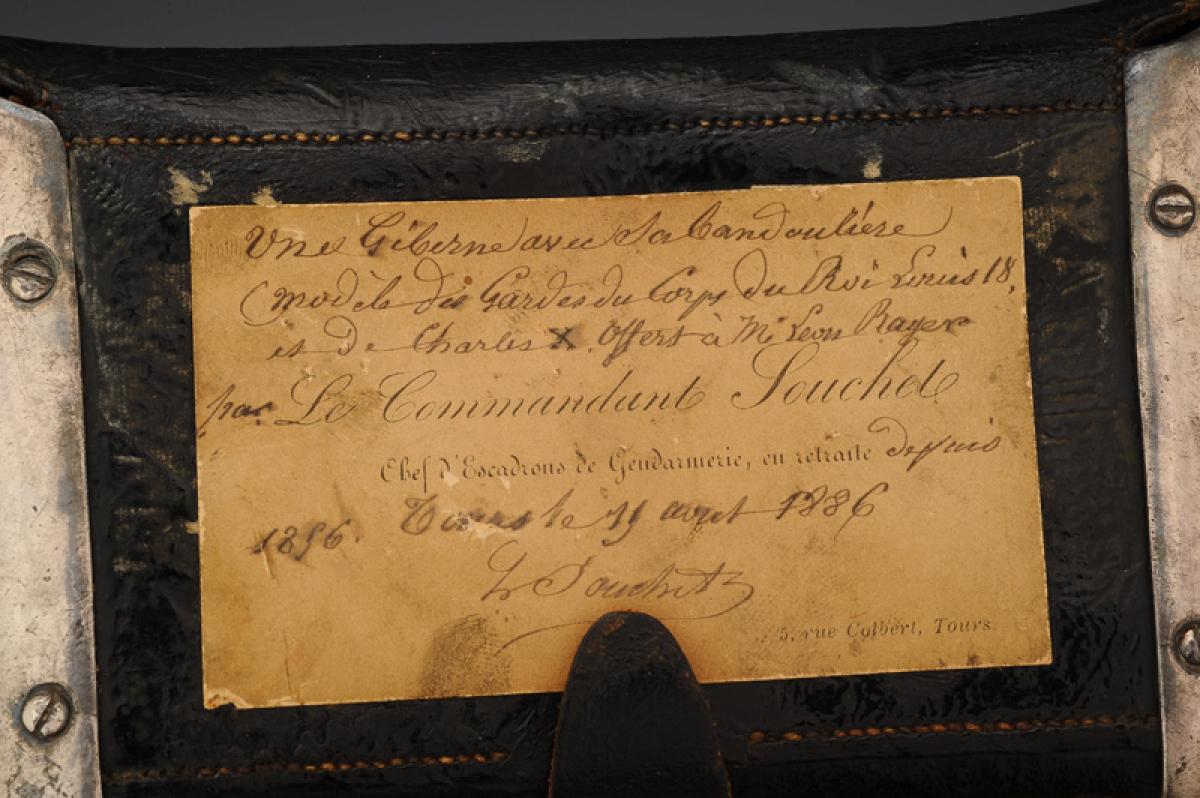 Une Giberne avec Sa bandoulière
modèle des Gardes du Corps du Roi Louis 18,
et De Charles X. Offert à Mr Léon Rayer
par Le Commandant Souchet
Chef d'Escadrons de Gendarmerie, en retraite depuis
1856. Tours le août 1886
Souchet
5, rue Colbert, Tours.